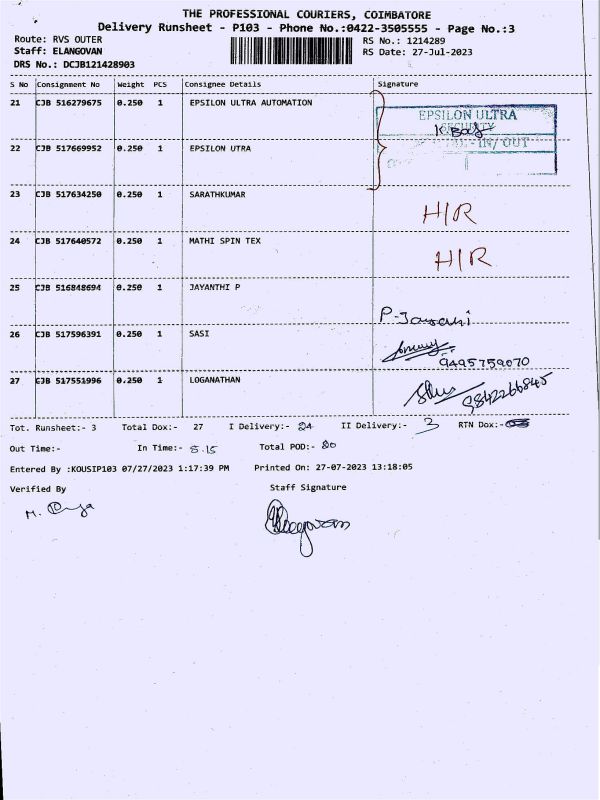 THE PROFESSIONAL COURIERS, COIMBATORE
Delivery Runsheet - P103 - Phone No.:0422-3505555 - Page No.:3
Route: RVS OUTER
RS No.: 1214289
Staff: ELANGOVAN
RS Date: 27-Jul-2023
DRS No.: DCJB121428903
S No Consignment No Weight PCS Consignee Details Signature
21 CJB 516279675 0.250 1 EPSILON ULTRA AUTOMATION
EPSILON ULTRA
SECURITY
IN/ OUT
22 CJB 517669952 0.250 1 EPSILON UTRA
23 CJB 517634250 0.250 1 SARATHKUMAR H/R
24 CJB 517640572 0.250 1 MATHI SPIN TEX H/R
25 CJB 516848694 0.250 1 JAYANTHI P
26 CJB 517596391 0.250 1 SASI
9495759070
27 CJB 517551996 0.250 1 LOGANATHAN
9842266845
Tot. Runsheet:- 3 Total Dox:- 27 I Delivery:- 24 II Delivery:- 3 RTN Dox:-
Out Time:- In Time:- 5.15 Total POD:- 20
Entered By :KOUSIP103 07/27/2023 1:17:39 PM Printed On: 27-07-2023 13:18:05
Verified By Staff Signature